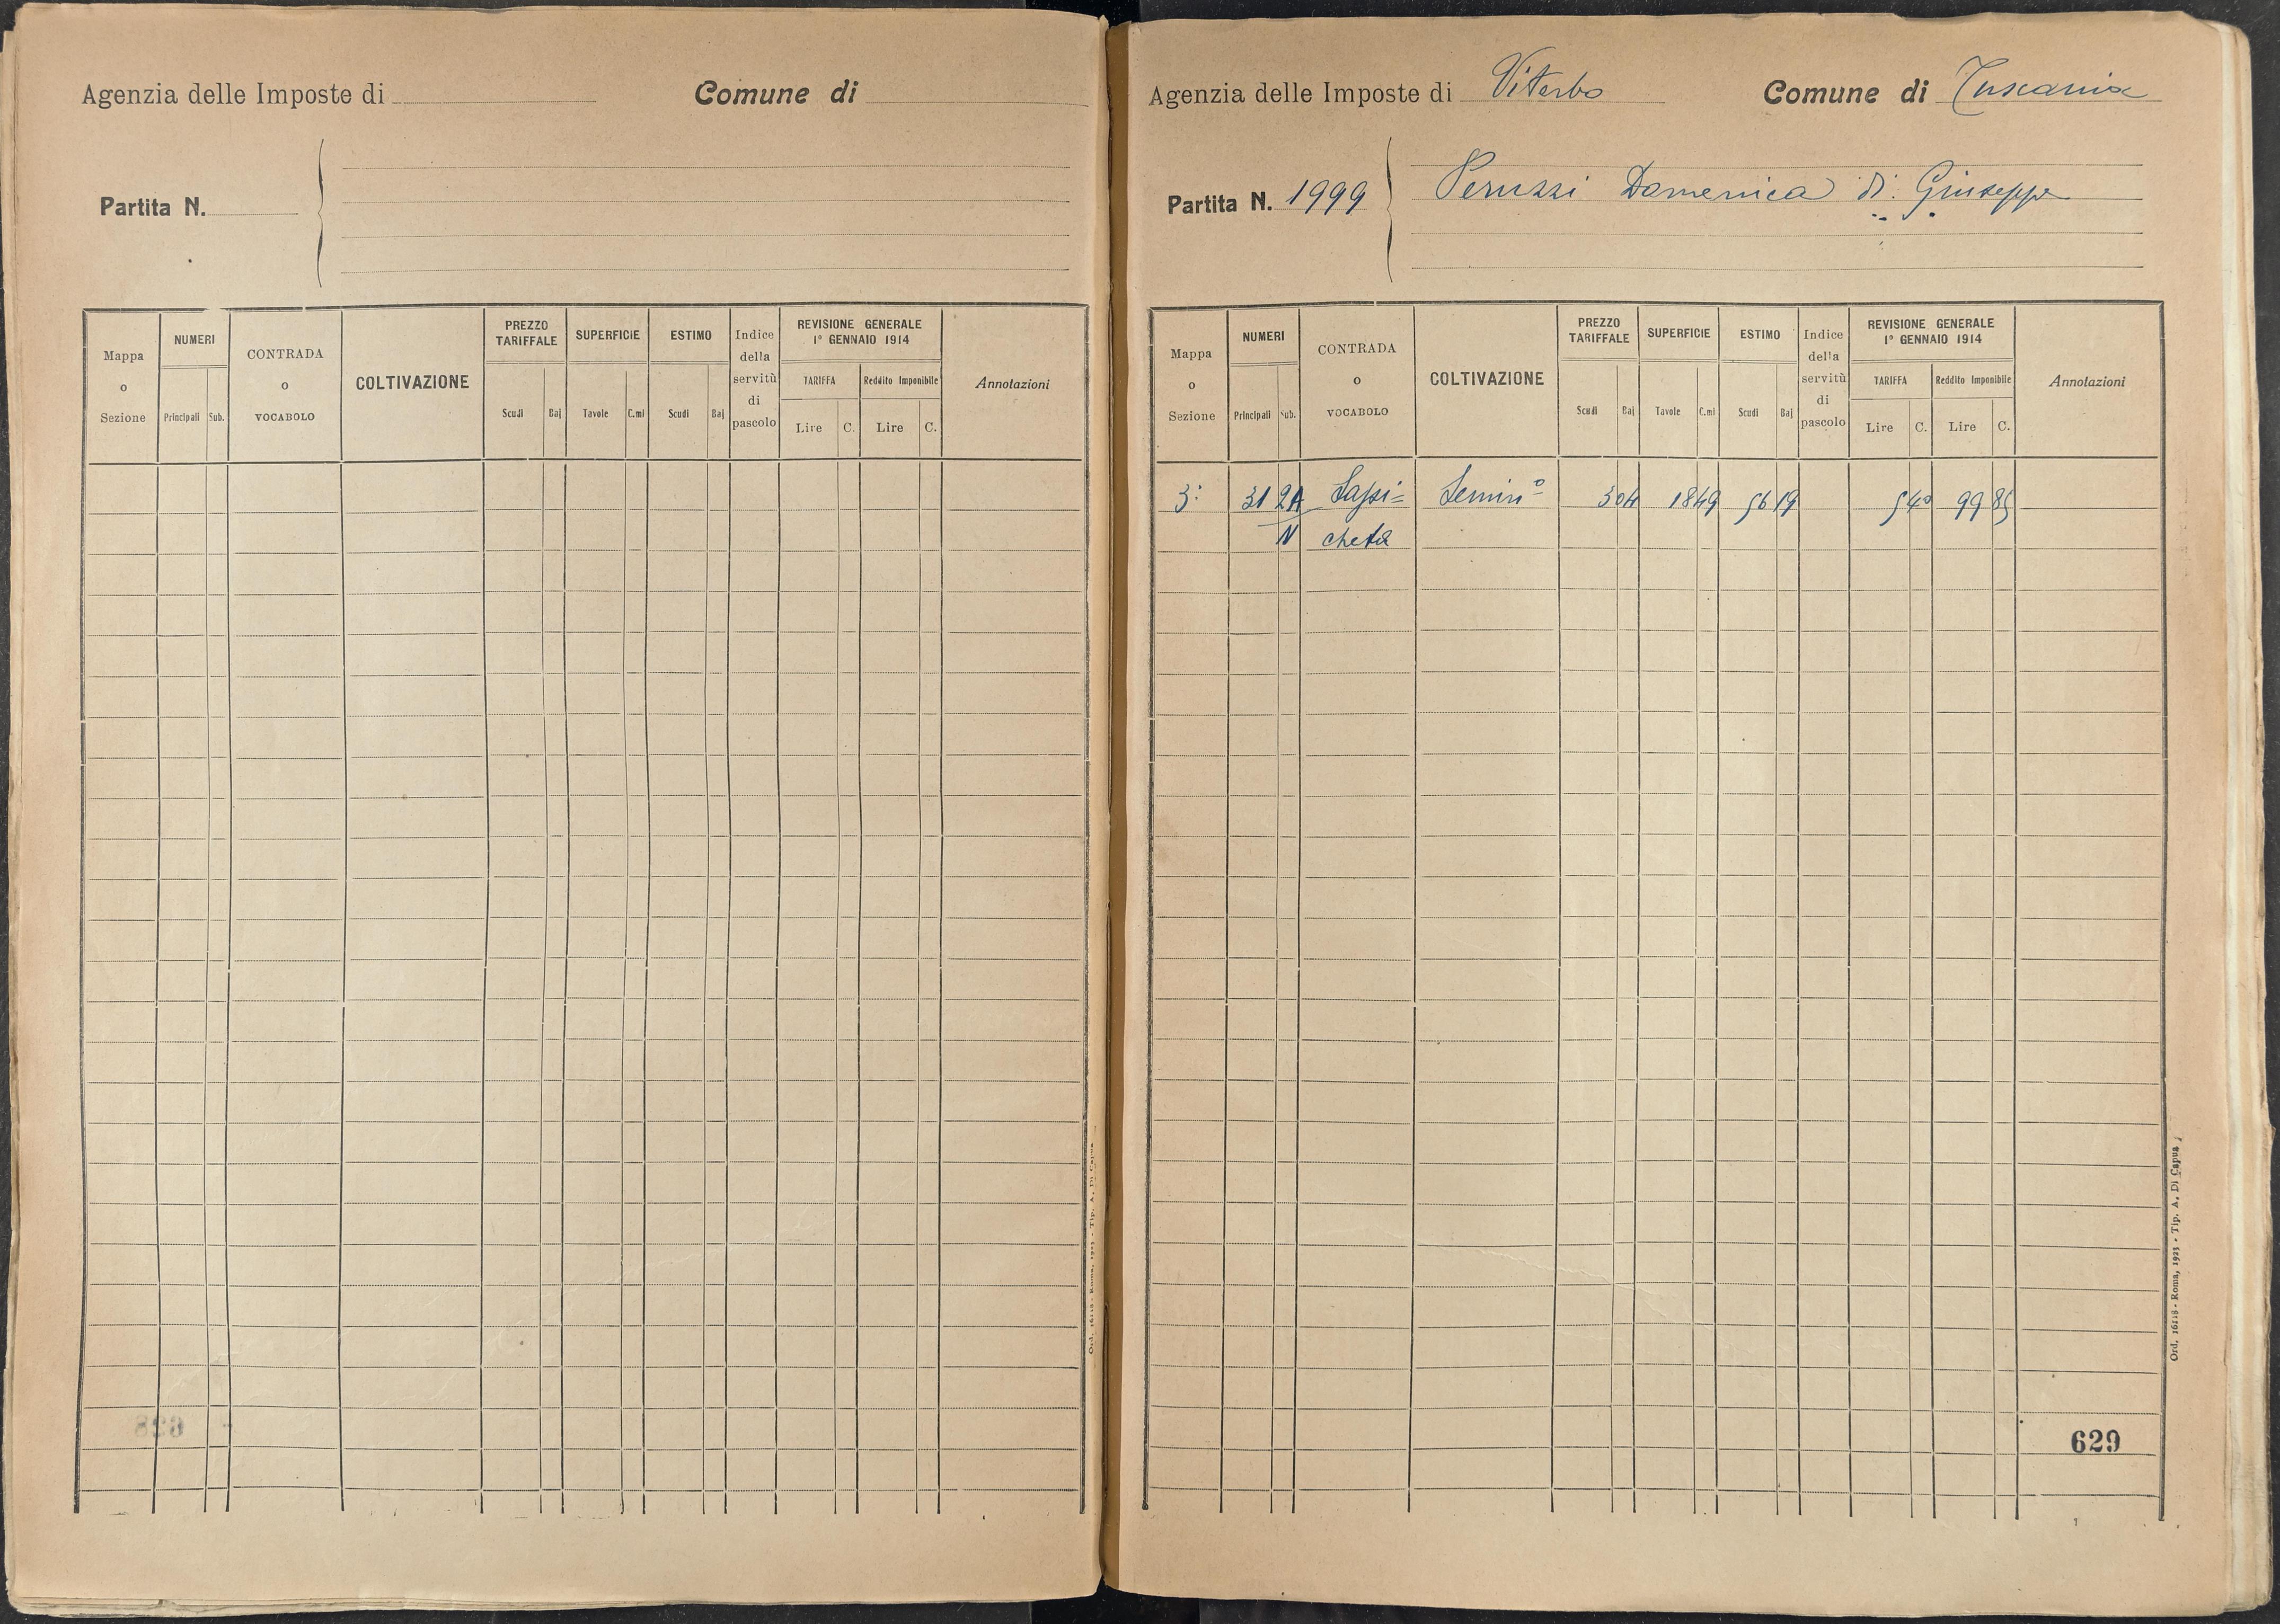 Agenzia delle Imposte di
Comune di
Partita N.
Mappa o Sezione
NUMERI
Principali Sub.
CONTRADA o VOCABOLO
COLTIVAZIONE
PREZZO TARIFFALE
Scudi Baj
SUPERFICIE
Tavole C.mi
ESTIMO
Scudi Baj
Indice della servitù di pascolo
REVISIONE GENERALE
1° GENNAIO 1914
TARIFFA Reddito Imponibile
Lire C. Lire C.
Annotazioni
Ord. 16218 - Roma, 1923 - Tip. A. Di Capua
Agenzia delle Imposte di Viterbo
Comune di Tuscania
Partita N. 1999
Peruzzi Domenica di Giuseppe
Mappa o Sezione
NUMERI
Principali Sub.
CONTRADA o VOCABOLO
COLTIVAZIONE
PREZZO TARIFFALE
Scudi Baj
SUPERFICIE
Tavole C.mi
ESTIMO
Scudi Baj
Indice della servitù di pascolo
REVISIONE GENERALE
1° GENNAIO 1914
TARIFFA Reddito Imponibile
Lire C. Lire C.
Annotazioni
3 312A Semin° 304 1849 5619 540 9985
N cheta
629
Ord. 16218 - Roma, 1923 - Tip. A. Di Capua